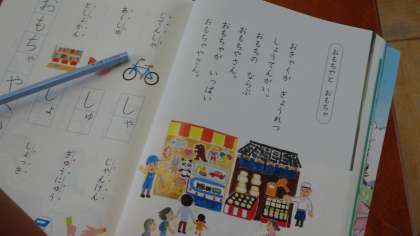 おもちやと おもちゃ
おきゃくが ぎょうれつ
しょうてんがい。
おもちの ならぶ
おもちやさん。
おもちゃが いっぱい
おもちゃやさん。
じてんしゃ
あくしゅ
としょかん
しゃ
しゅ
しょ
おもちゃや
じゃんけん
ぎゅうにゅう
しょっき